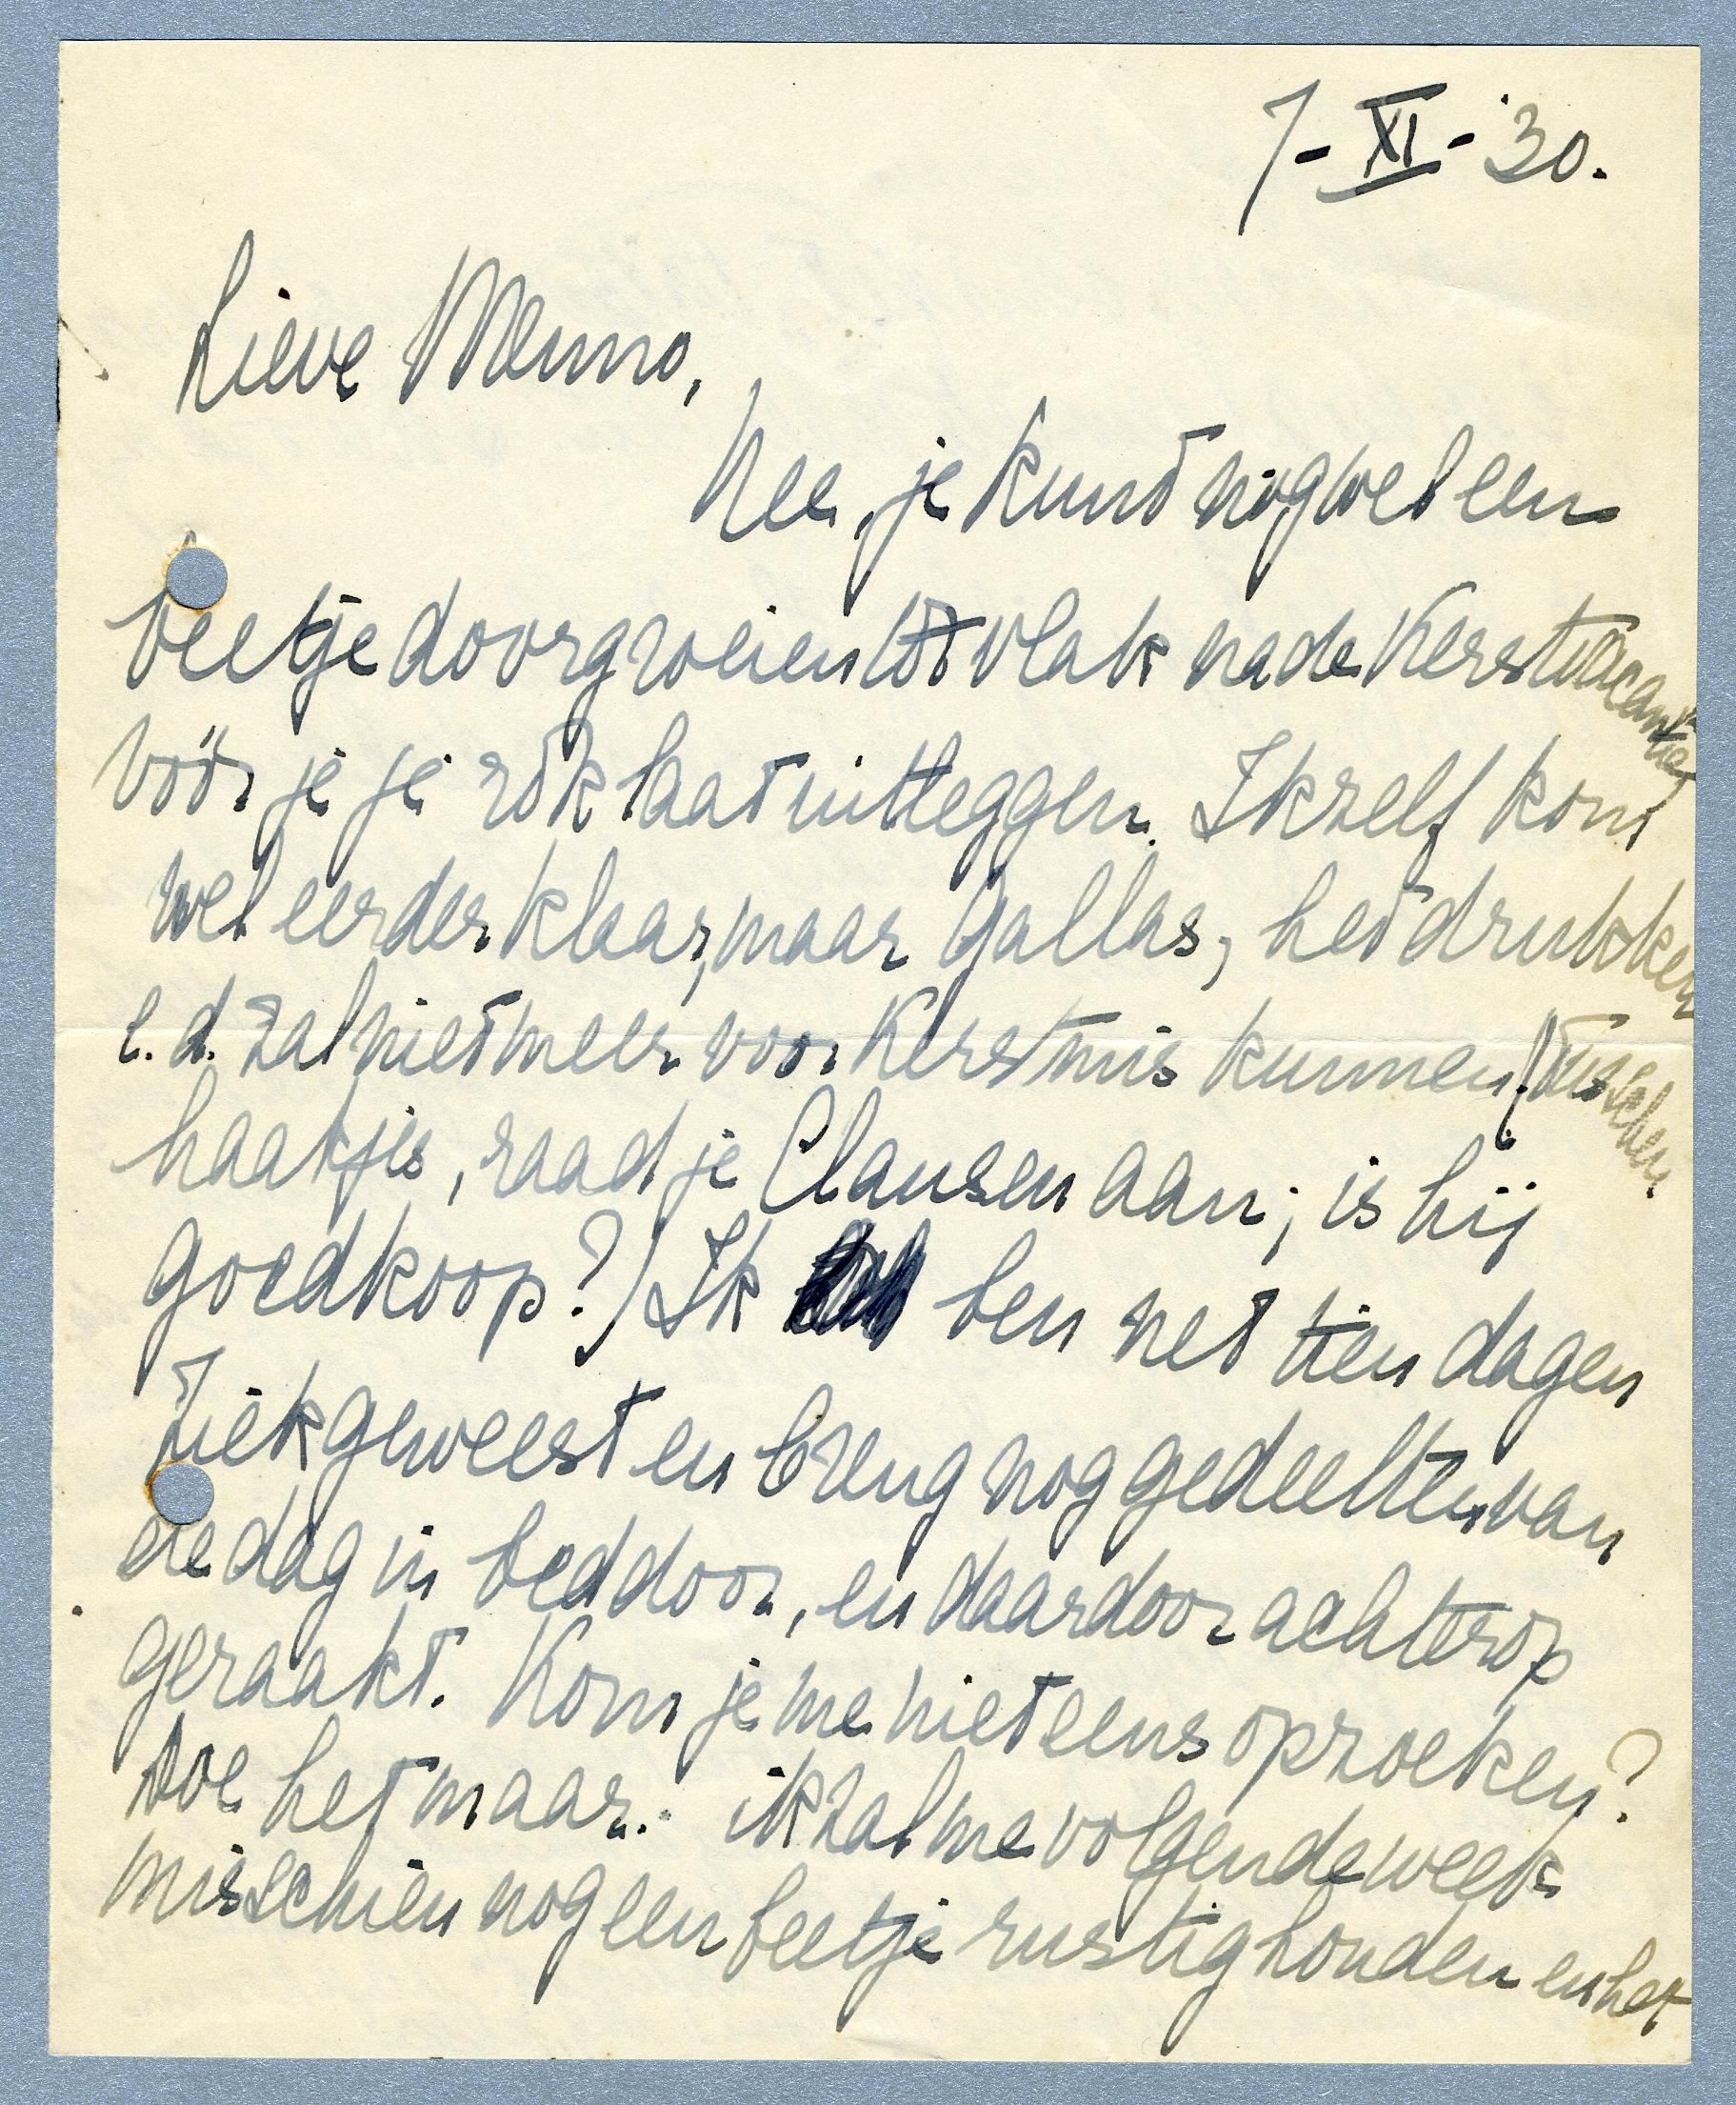 7-XI-'30.
Lieve Menno,
Nee, je kunt nog wel een
beetje doorgroeien tot vlak na de Kerstvacantie
vóór je je rok laat uitleggen. Ik zelf kom
wel eerder klaar, maar Gallas, het drukken
e.d. zal niet meer voor Kerstmis kunnen. (Tusschen
haakjes, raad je Clausen aan; is hij
goedkoop?) Ik ben net tien dagen
ziek geweest en breng nog gedeelten van
de dag in bed door, en daardoor achterop
geraakt. Kom je me niet eens opzoeken?
Doe het maar.: ik zal me volgende week
misschien nog een beetje rustig houden en het